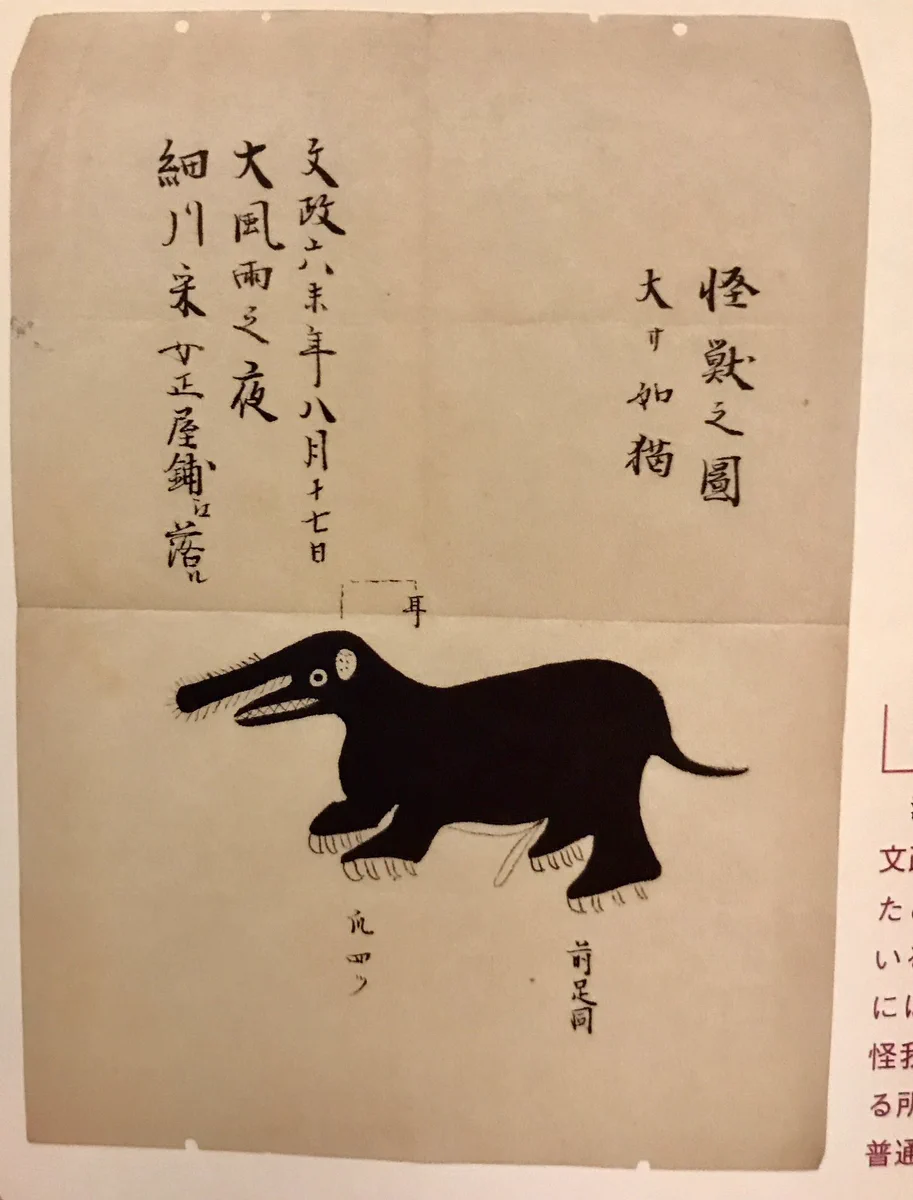 怪獣之圖
大サ如猫
文政六未年八月十七日
大風雨之夜
細川采女正屋鋪江落ル
耳
爪四ツ
前足同
文政
た
いる
に
怪我
る所
普通